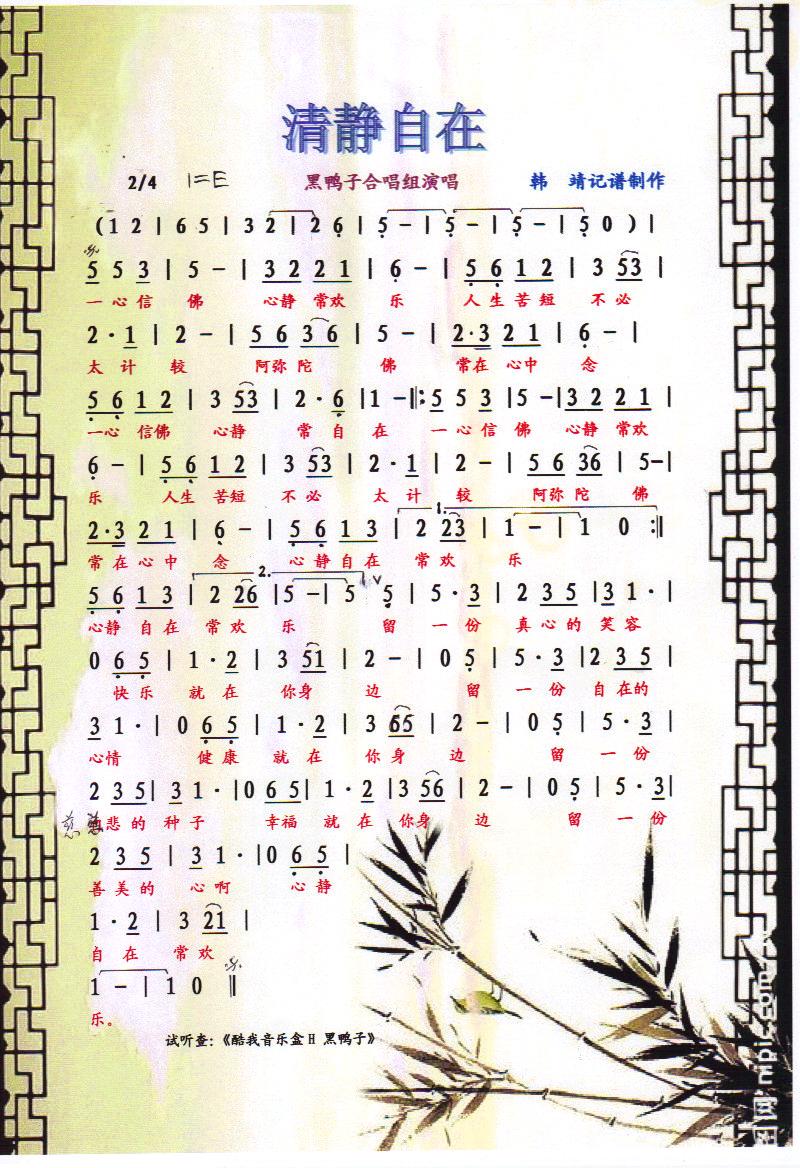 清静自在
2/4 1=E 黑鸭子合唱组演唱 韩 靖记谱制作
( 1 2 | 6 5 | 3 2 | 2 6 | 5 – | 5 – | 5 – | 5 0 ) |
5 5 3 | 5 – | 3 2 2 1 | 6 – | 5 6 1 2 | 3 53 |
一 心 信 佛 心静 常欢 乐 人 生 苦 短 不 必
2 · 1 | 2 – | 5 6 3 6 | 5 – | 2·3 2 1 | 6 – |
太 计 较 阿弥 陀 佛 常在 心中 念
5 6 1 2 | 3 53 | 2 · 6 |1 –‖: 5 5 3 |5 –|3 2 2 1 |
一心 信佛 心静 常 自 在 一 心 信 佛 心静 常欢
6 – | 5 6 1 2 | 3 53 | 2 · 1 | 2 – | 5 6 36 | 5–|
乐 人生 苦短 不 必 太 计 较 阿弥 陀 佛
2·3 2 1 | 6 – | 5 6 1 3 | 1. 2 23 | 1 – | 1 0 :‖
常 在 心 中 念 心 静 自 在 常 欢 乐
5 6 1 3 | 2. 2 26 |5 –| 5 ∨ 5 | 5 · 3 | 2 3 5 |3 1 · |
心静 自 在 常 欢 乐 留 一 份 真 心 的 笑 容
0 6 5 | 1 · 2 | 3 51 | 2 – | 0 5 | 5 · 3 |2 3 5 |
快 乐 就 在 你身 边 留 一 份 自 在的
3 1 · | 0 6 5 | 1 · 2 | 3 65 | 2 – | 0 5 | 5 · 3 |
心情 健 康 就 在 你 身 边 留 一 份
2 3 5| 3 1 · |0 6 5| 1 · 2 |3 56 | 2 – | 0 5 | 5 · 3|
悲 的 种 子 幸福 就 在 你身 边 留 一 份
2 3 5 | 3 1 · |0 6 5 |
善 美 的 心 啊 心 静
1 · 2 | 3 21 |
自 在 常 欢
1 – | 1 0 ‖
乐。
试听查：《酷我音乐盒H 黑鸭子》